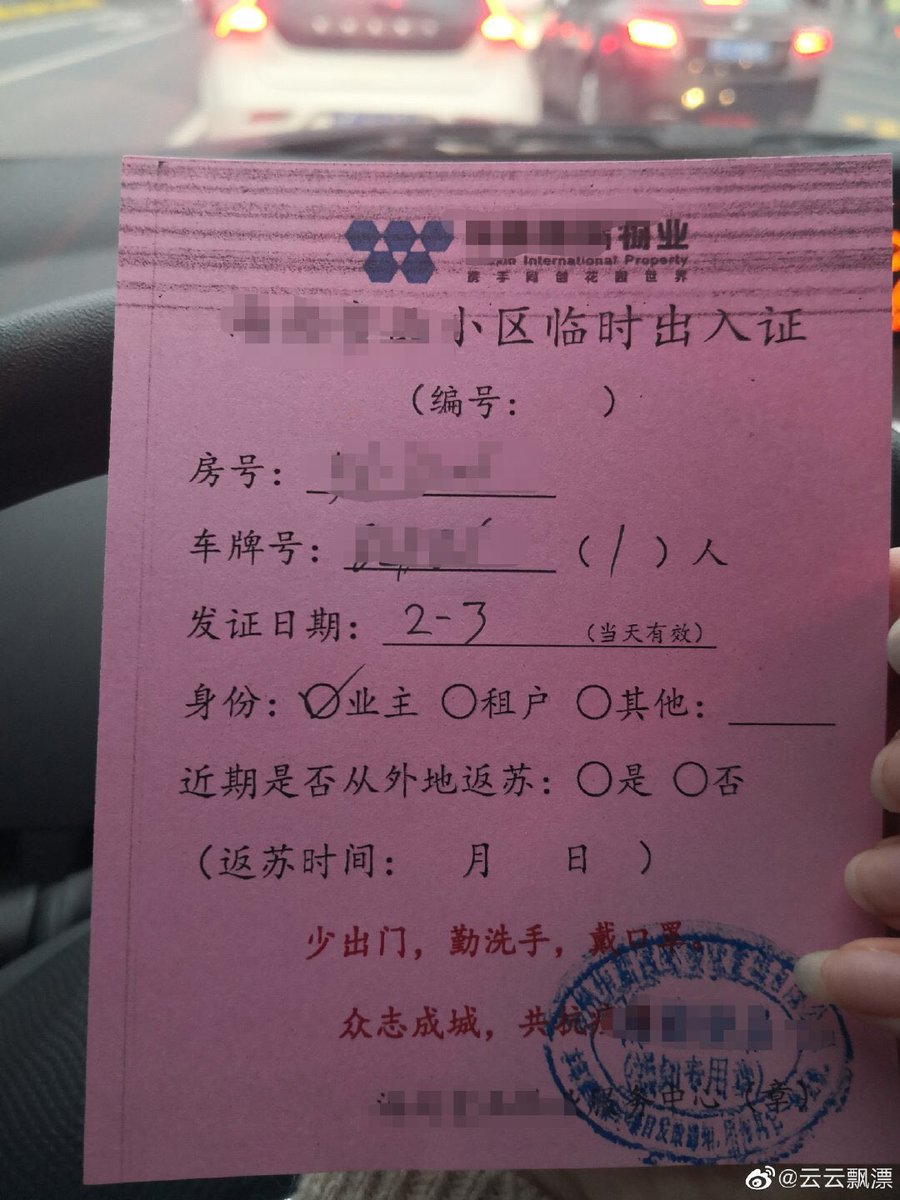 物业
International Property
携手同创花园世界
小区临时出入证
（编号： ）
房号：
车牌号： （1）人
发证日期：2-3 （当天有效）
身份：业主 租户 其他：
近期是否从外地返苏：是 否
（返苏时间： 月 日 ）
少出门，勤洗手，戴口罩。
众志成城，共抗
服务中心（章）
专用章
@云云飘漂